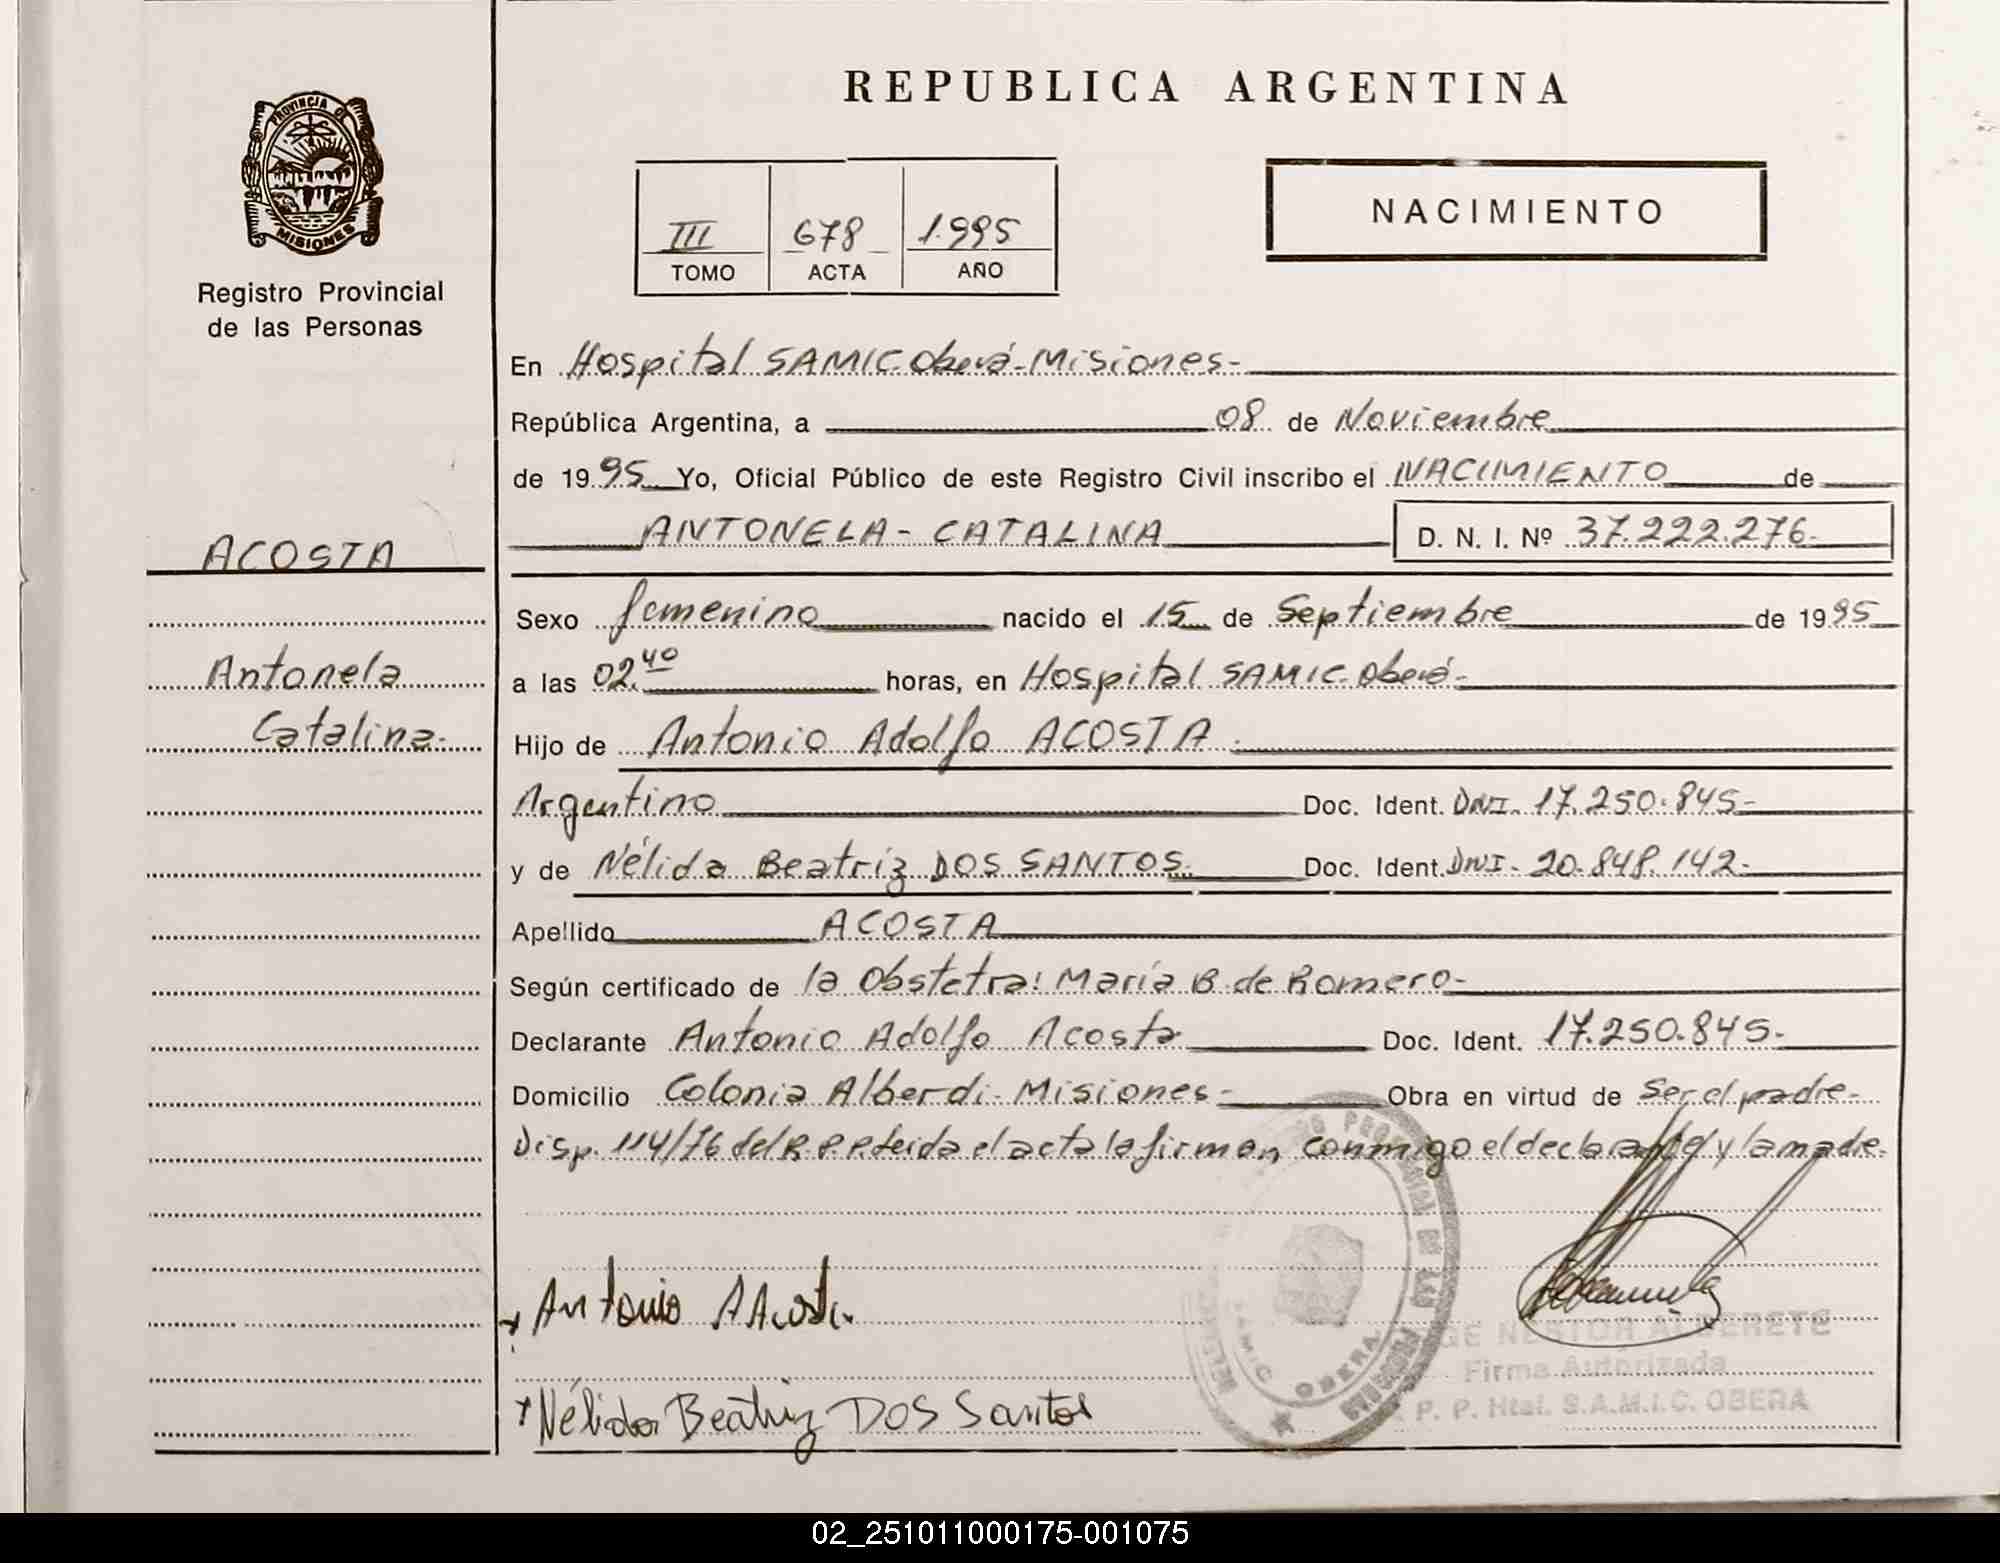 REPUBLICA ARGENTINA
PROVINCIA DE
MISIONES
Registro Provincial
de las Personas
III 678 1.995
TOMO ACTA AÑO
NACIMIENTO
En Hospital SAMIC Oberá-Misiones-
República Argentina, a 08 de Noviembre
de 1995 Yo, Oficial Público de este Registro Civil inscribo el NACIMIENTO de
ANTONELA-CATALINA D. N. I. Nº 37.222.276-
ACOSTA
Antonela
Catalina-
Sexo femenino nacido el 15 de Septiembre de 1995
a las 02.40 horas, en Hospital SAMIC-Oberá-
Hijo de Antonio Adolfo ACOSTA
Argentino Doc. Ident. DNI- 17.250.845-
y de Nélida Beatríz DOS SANTOS Doc. Ident. DNI- 20.848.142-
Apellido ACOSTA
Según certificado de la Obstetra: María B. de Romero-
Declarante Antonio Adolfo Acosta Doc. Ident. 17.250.845-
Domicilio Colonia Alberdi- Misiones- Obra en virtud de Ser el padre-
Disp. 114/76 del R.P.P. Leida el acta la firman conmigo el declarante y la madre-
Antonio A Acosta
Nélida Beatriz DOS Santos
OBERA
NESTOR ALDERETE
Firma Autorizada
P. P. Htal. S.A.M.I.C. OBERA
02_251011000175-001075